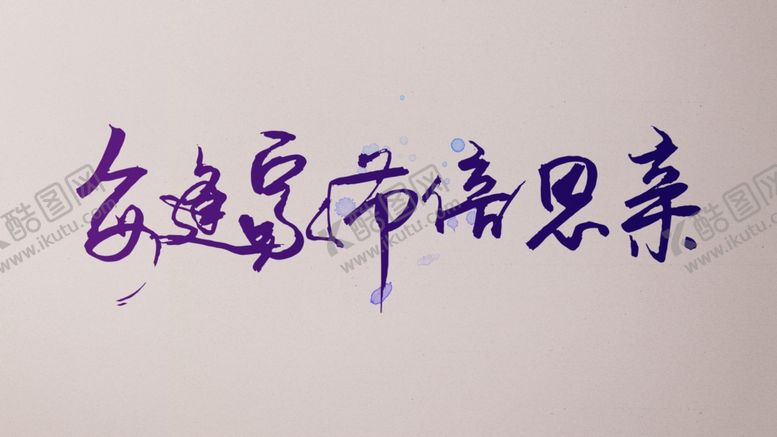 每逢 倍思亲
酷图网
www.ikutu.com
酷图网
www.ikutu.com
酷图网
www.ikutu.com